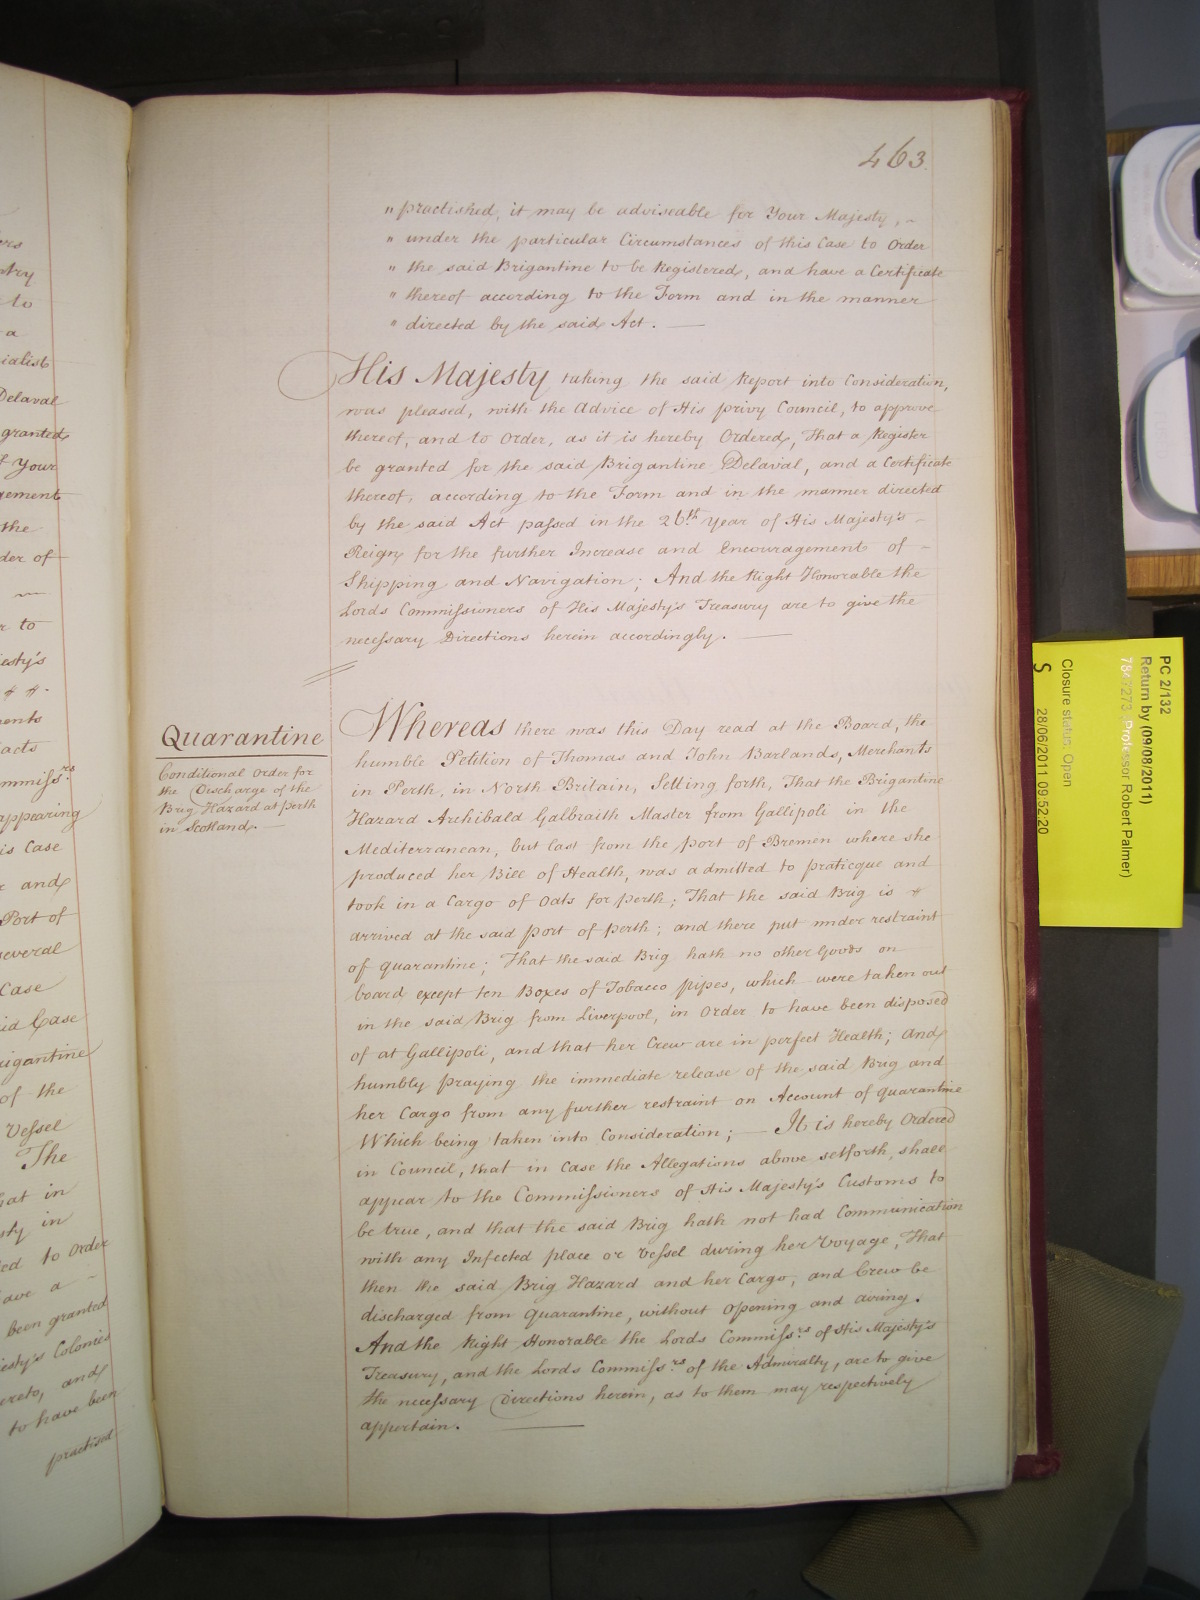 463.
" practished, it may be adviseable for Your Majesty, -
" under the particular Circumstances of this Case to Order
" the said Brigantine to be Registered, and have a Certificate
" thereof according to the Form and in the manner
" directed by the said Act. —
His Majesty taking the said Report into Consideration,
was pleased, with the Advice of His privy Council, to approve
thereof, and to Order, as it is hereby Ordered, That a Register
be granted for the said Brigantine Delaval, and a Certificate
thereof, according to the Form and in the manner directed
by the said Act passed in the 26th. Year of His Majesty's -
Reign for the further Increase and Encouragement of -
Shipping and Navigation; And the Right Honorable the
Lords Commissioners of His Majesty's Treasury are to give the
necessary Directions herein accordingly. —
Quarantine
Conditional Order for
the Discharge of the
Brig Hazard at perth
in Scotland. —
Whereas there was this Day read at the Board, the
humble Petition of Thomas and John Barlands, Merchants
in Perth, in North Britain, Setting forth, That the Brigantine
Hazard Archibald Galbraith Master from Gallipoli in the
Mediterranean, but last from the port of Bremen where she
produced her Bill of Health, was admitted to praticque and
took in a Cargo of Oats for perth; That the said Brig is #
arrived at the said port of perth; and there put under restraint
of quarantine; That the said Brig hath no other Goods on
board except ten Boxes of Tobacco pipes, which were taken out
in the said Brig from Liverpool, in Order to have been disposed
of at Gallipoli, and that her Crew are in perfect Health; And
humbly praying the immediate release of the said Brig and
her Cargo from any further restraint on Account of quarantine
Which being taken into Consideration; — It is hereby Ordered
in Council, that in Case the Allegations above setforth, shall
appear to the Commissioners of His Majesty's Customs to
be true, and that the said Brig hath not had Communication
with any Infected place or Vessel during her Voyage, That
then the said Brig Hazard and her Cargo, and Crew be
discharged from Quarantine, without Opening and airing.
And the Right Honorable the Lords Commissrs. of His Majesty's
Treasury, and the Lords Commissrs. of the Admiralty, are to give
the necessary Directions herein, as to them may respectively
appertain. —
Delaval
granted
Your
the
der of
r to
esty's
appearing
is Case
and
Port of
several
Case
id Case
rigantine
of the
Vessel
The
hat in
ed to Order
ave a -
been granted
esty's Colonies
ereto, and
to have been
practised
PC 2/132
Return by (09/08/2011)
7847273 (Professor Robert Palmer)
Closure status: Open
S 28/06/2011 09:52:20